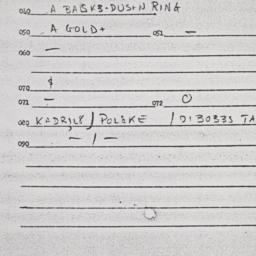 040 A BASKB-DUSIN RING
050 A GOLD+ 051 —
060 —
070 $
071 — 072 O
080 KADRILY / POLSKE / DI 30335 TA
— / —
090